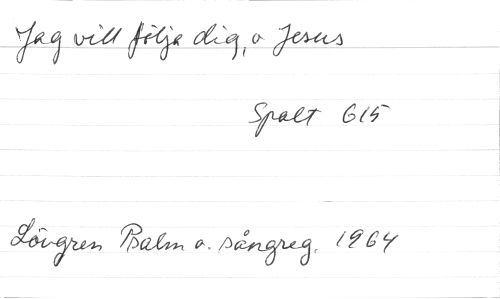 Jag vill följa dig, o Jesus
Spalt 615
Lövgren Psalm o. sångreg. 1964